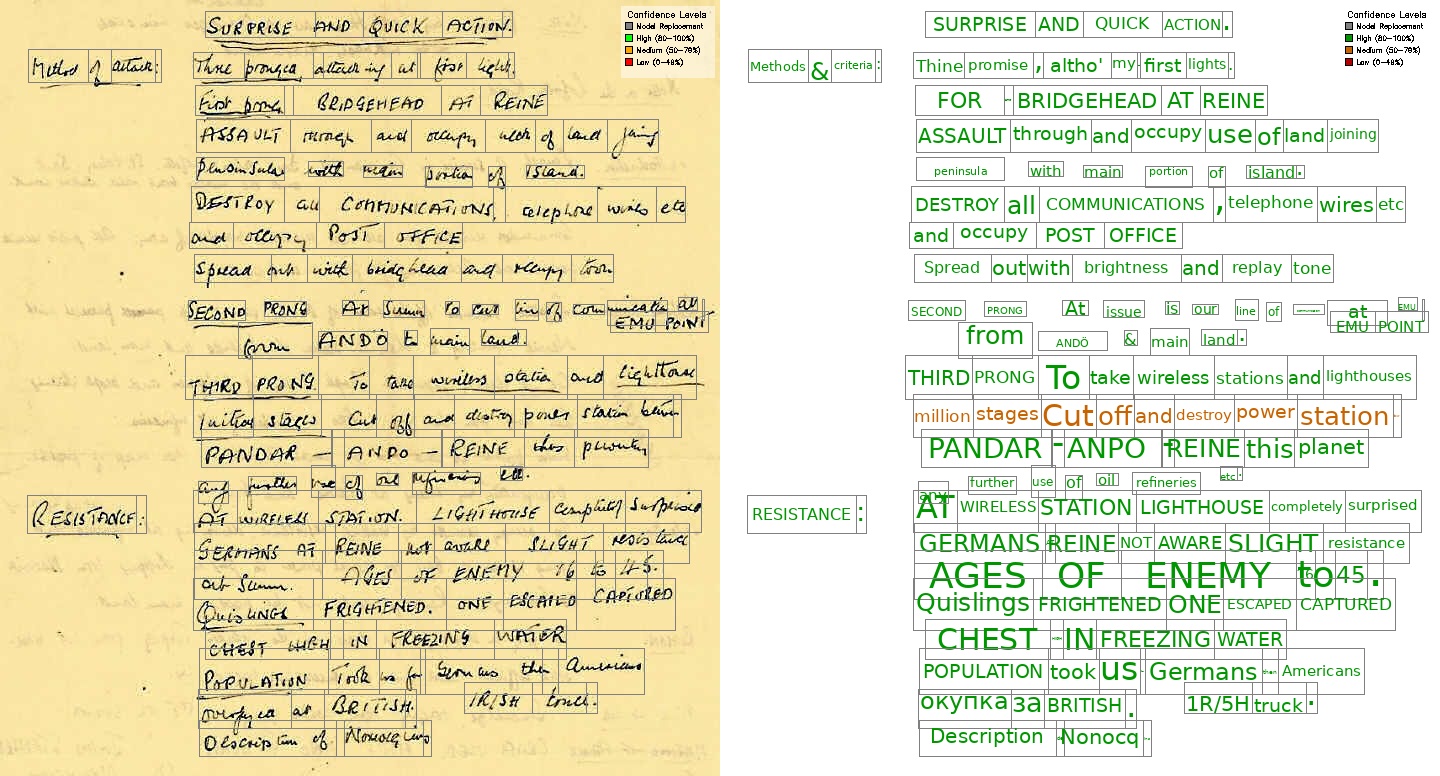 SURPRISE AND QUICK ACTION.
Confidence Levels
Model Replacement
High (80-100%)
Medium (50-79%)
Low (0-49%)
Method of attack:
Three pronged attacking at first light.
First prong BRIDGEHEAD AT REINE
ASSAULT through and occupy neck of land joining
peninsular with main portion of island.
DESTROY all COMMUNICATIONS, telephone wires etc
and occupy POST OFFICE
Spread out with bridgehead and occupy town
SECOND PRONG At Sumn To cut line of communication at
EMU POINT
from ANDÖ to main land.
THIRD PRONG. To take wireless station and lighthouse
Initial stages Cut off and destroy power station between
PANDAR — ANDO — REINE thus preventing
any further use of oil refineries etc.
RESISTANCE:
AT WIRELESS STATION. LIGHTHOUSE completely surprised
GERMANS AT REINE not aware SLIGHT resistance
at Sumn. AGES OF ENEMY 16 to 45.
QUISLINGS FRIGHTENED. ONE ESCAPED CAPTURED
CHEST HIGH IN FREEZING WATER
POPULATION Took us for Germans then Americans
overjoyed at BRITISH. IRISH touch.
Description of
SURPRISE AND QUICK ACTION.
Confidence Levels
Model Replacement
High (80-100%)
Medium (50-79%)
Low (0-49%)
Methods & criteria :
Thine promise , altho' my first lights .
FOR - BRIDGEHEAD AT REINE
ASSAULT through and occupy use of land joining
peninsula with main portion of island .
DESTROY all COMMUNICATIONS , telephone wires etc
and occupy POST OFFICE
Spread out with brightness and replay tone
SECOND PRONG At issue is our line of at EMU
EMU POINT
from ANDÖ & main land .
THIRD PRONG To take wireless stations and lighthouses
million stages Cut off and destroy power station
PANDAR - ANPO - REINE this planet
any further use of oil refineries etc.
RESISTANCE :
AT WIRELESS STATION LIGHTHOUSE completely surprised
GERMANS REINE NOT AWARE SLIGHT resistance
AGES OF ENEMY to 45 .
Quislings FRIGHTENED ONE ESCAPED CAPTURED
CHEST IN FREEZING WATER
POPULATION took us Germans Americans
окупка за BRITISH . 1R/5H truck .
Description Nonocq